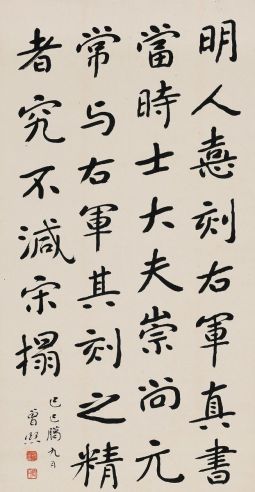 明人憙刻右軍真書
當時士大夫崇尚元
常与右軍其刻之精
者究不減宋搨
己巳臈九日
曾熙